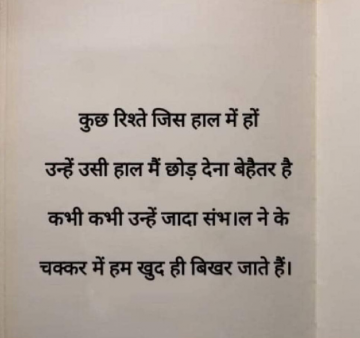 कुछ रिश्ते जिस हाल में हों
उन्हें उसी हाल मैं छोड़ देना बेहैतर है
कभी कभी उन्हें जादा संभ।ल ने के
चक्कर में हम खुद ही बिखर जाते हैं।